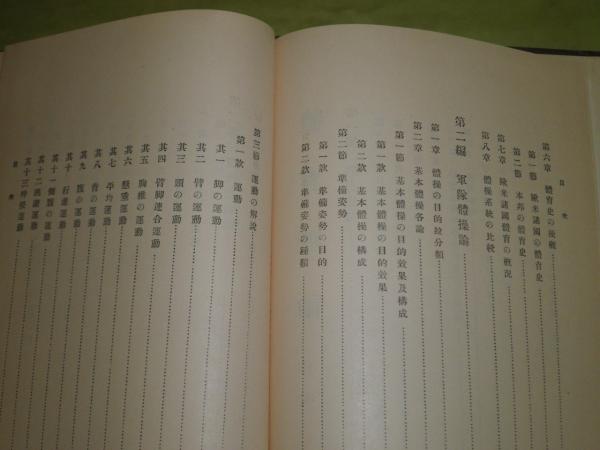 目次
第六章 體育史の後概
第一節 歐米諸國の體育史
第二節 本邦の體育史
第七章 歐米諸國體育の概況
第八章 體操系統の比較
第二編 軍隊體操論
第一章 體操の目的竝分類
第二章 基本體操各論
第一節 基本體操の目的效果及構成
第一款 基本體操の目的效果
第二款 基本體操の構成
第二節 準備姿勢
第一款 準備姿勢の目的
第二款 準備姿勢の種類
第三節 運動の解說
第一款 運動
其一 脚の運動
其二 臂の運動
其三 頭の運動
其四 臂脚連合運動
其五 胸椎の運動
其六 懸垂運動
其七 平均運動
其八 背の運動
其九 腹の運動
其十 行進運動
其十一 側腹の運動
其十二 跳躍運動
其十三 呼吸運動
目次